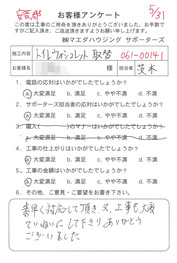 営業部
5/31
お客様アンケート
この度は工事のご用命を頂きありがとうございました。お手数で
すがご記入頂き、ご返送頂きますようお願い申し上げます。
㈱マエダハウジング サポーターズ
施工内容 トイレウォシュレット 取替 061-00141
お名前 様 担当者 茨木
1. 電話の応対はいかがでしたでしょうか?
a. 大変満足 b. 満足 c. やや不満 d. 不満
2. サポーターズ担当者の応対はいかがでしたでしょうか?
a. 大変満足 b. 満足 c. やや不満 d. 不満
a. 大変満足 b. 満足 c. やや不満 d. 不満
4. 工事の仕上がりはいかがでしたでしょうか?
a. 大変満足 b. 満足 c. やや不満 d. 不満
5. 工事の金額はいかがでしたでしょうか?
a. 大変満足 b. 満足 c. やや不満 d. 不満
6. その他、ご意見・ご要望をお書き下さい。
素早く対応して頂き又、工事も大変
ていねいにして下さり ありがとう
ございました。